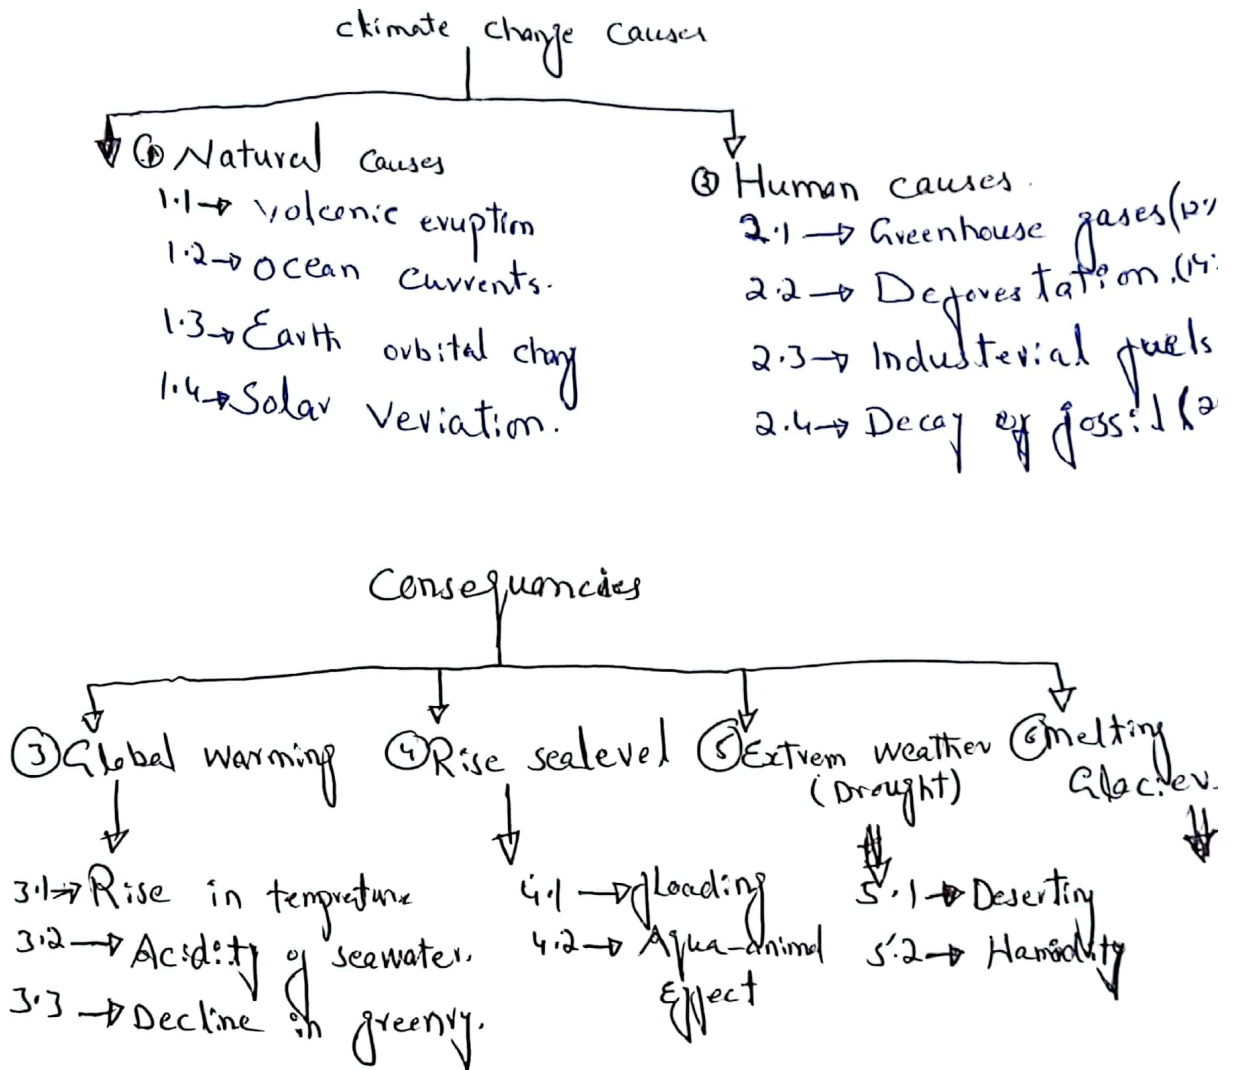 climate change causes
① Natural causes
1.1→ volcanic eruption
1.2→ ocean currents.
1.3→ Earth orbital chang
1.4→ Solar Veriation.
② Human causes.
2.1→ Greenhouse gases (12%
2.2→ Deforestation. (14%
2.3→ Industerial fuels
2.4→ Decay of fossil (2
Consequancies
③ Global warming
3.1→ Rise in tempreture
3.2→ Acidity of seawater.
3.3→ Decline in greenry.
④ Rise sealevel
4.1→ floading
4.2→ Aqua-animal
Effect
⑤ Extrem weather
(Drought)
5.1→ Deserting
5.2→ Hamidity
⑥ melting
Glacier.